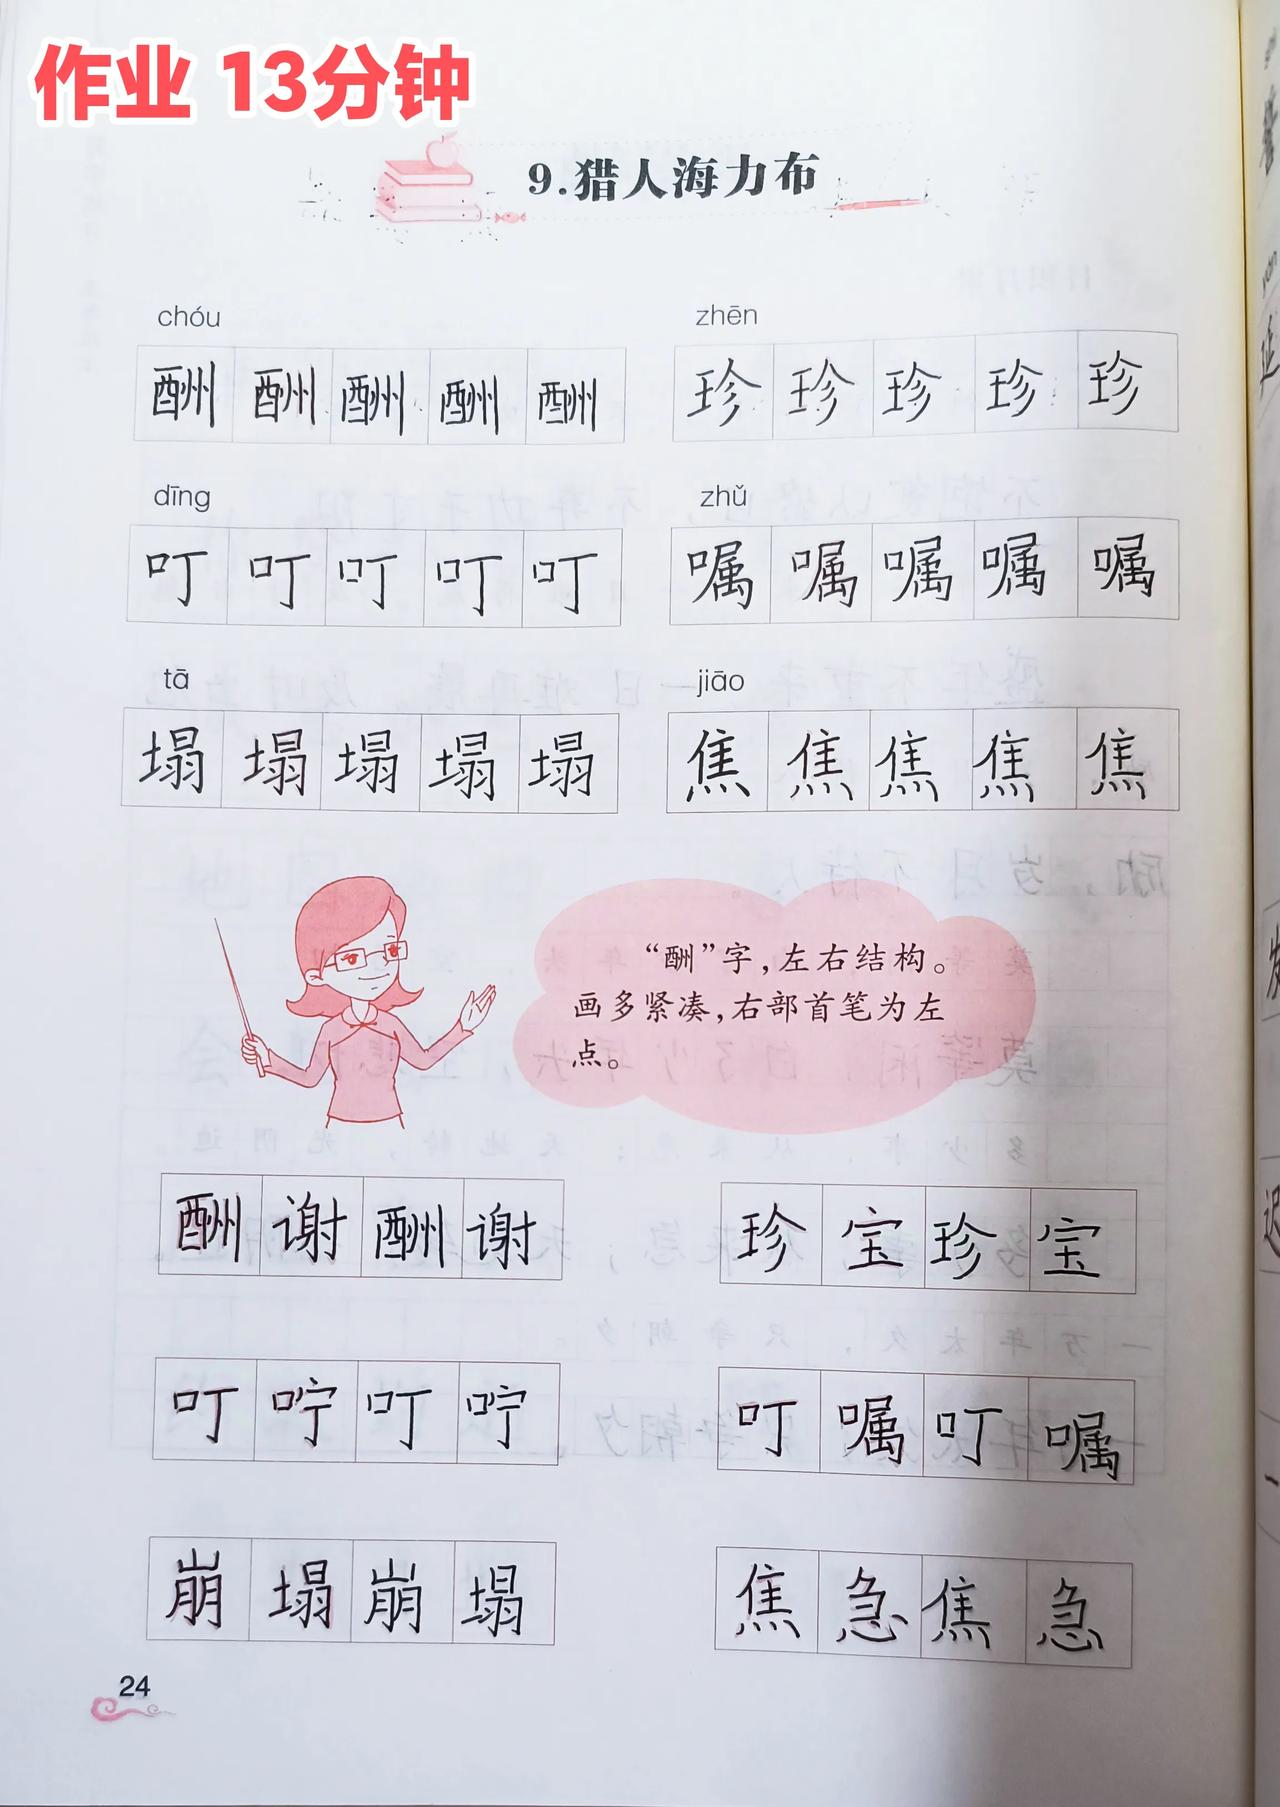 作业 13分钟
9.猎人海力布
chóu zhēn
酬酬酬酬酬 珍珍珍珍珍
dīng zhǔ
叮叮叮叮叮 嘱嘱嘱嘱嘱
tā jiāo
塌塌塌塌塌 焦焦焦焦焦
“酬”字,左右结构。
画多紧凑,右部首笔为左
点。
酬谢酬谢 珍宝珍宝
叮咛叮咛 叮嘱叮嘱
崩塌崩塌 焦急焦急
24